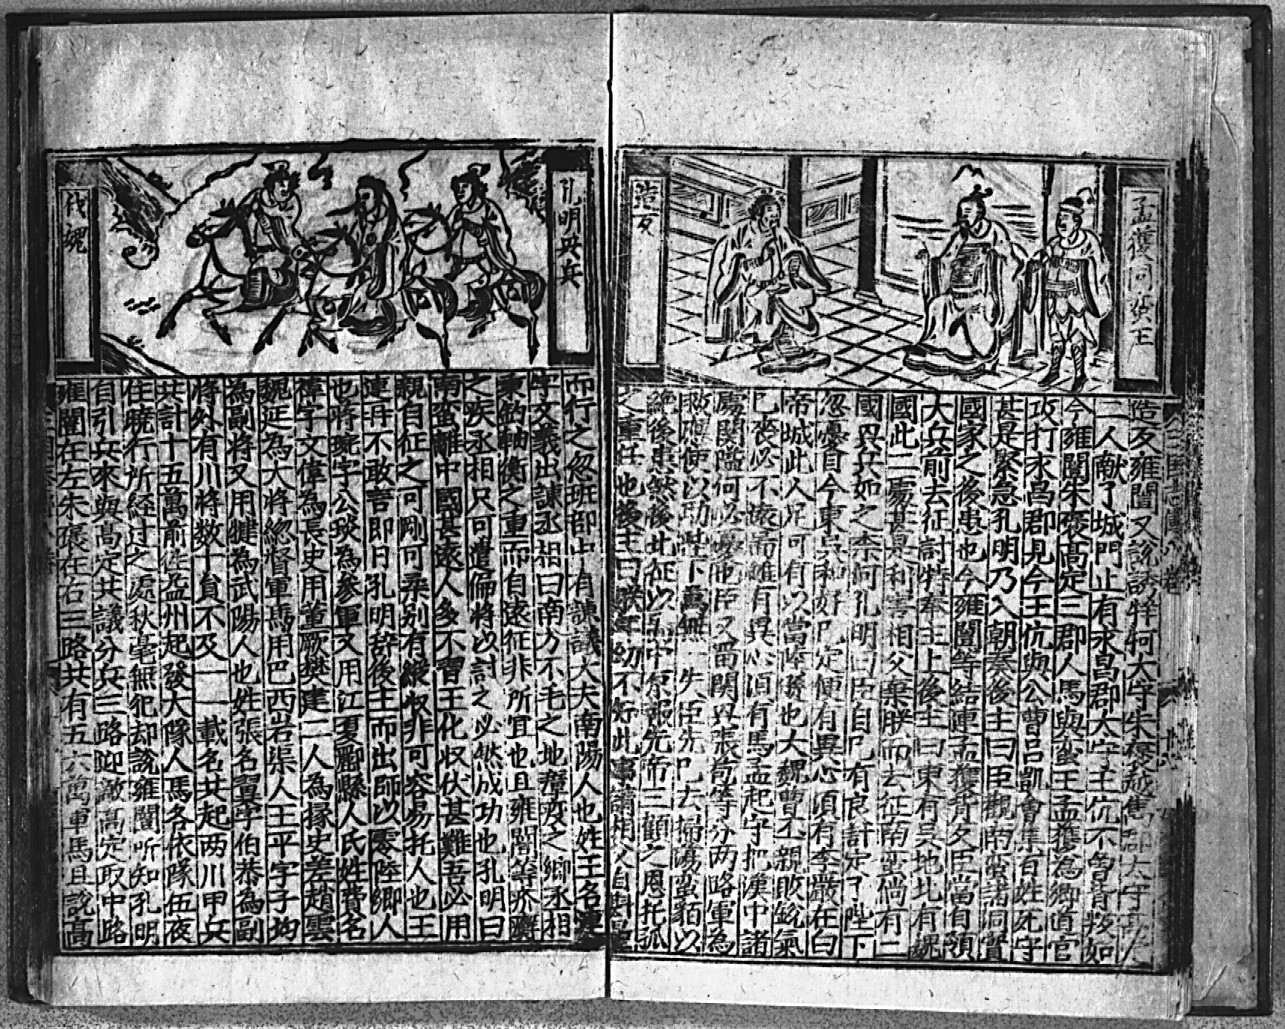 孟獲同蛮王
造反
造反雍闓又說誘牂牁太守朱褒越嶲郡太守高定
二人献了城門止有永昌郡太守王伉不曾背叛如
今雍闓朱褒高定三郡人馬與蛮王孟獲為鄉道官
攻打永昌郡見今王伉與公曹吕凱會集百姓死守
甚是緊急孔明乃入朝奏後主曰臣觀南蛮諸洞實
國家之後患也今雍闓等結連孟獲背反臣當自領
大兵前去征討特奉主上後主曰東有吴地北有魏
國此二處甚是利害相父棄朕而去征南蛮倘有二
國興兵如之奈何孔明曰臣自已有良計定了陛下
忽憂自今東吴和好已定便有異心須有李嚴在白
帝城此人足可有以當陸遜也大魏曹丕親敗銳氣
已喪必不遠啚雖有異心須有馬孟起守把漢中諸
處関隘何必憂也臣又留関興張苞等分两路軍為
救應使以助陛下萬無一失臣先已去掃蕩蛮貊以
絶後患然後北征以啚中原報先帝三顧之恩托孤
之重任也後主曰朕年幼不好此事請相父自斟量
孔明興兵
伐魏
而行之忽班部中有諫議大夫南陽人也姓王名連
字文義出諫丞相曰南方不毛之地瘴疫之鄉丞相
秉鈞軸衡之重而自遠征非所宜也且雍闓等疥癬
之疾丞相只可遣偏將以討之必然成功也孔明曰
南蛮離中國甚遠人多不習王化収伏甚難吾必用
親自征之可剛可柔别有緩収非可容易托人也王
連再不敢言即日孔明辞後主而出師以零陵鄉人
也將琬字公琰為參軍又用江夏鄳縣人氏姓費名
禕字文偉為長史用董厥樊建二人為掾史差趙雲
魏延為大將総督軍馬用巴西岩渠人王平字子均
為副將又用犍為武陽人也姓張名翼字伯恭為副
將外有川將数十員不及一一載名共起两川甲兵
共計十五萬前徃益州起發大隊人馬各依隊伍夜
住曉行所經过之處秋毫無犯却說雍闓听知孔明
自引兵來與高定共議分兵三路迎敵高定取中路
雍闓在左朱褒在右三路共有五六萬軍馬且說高